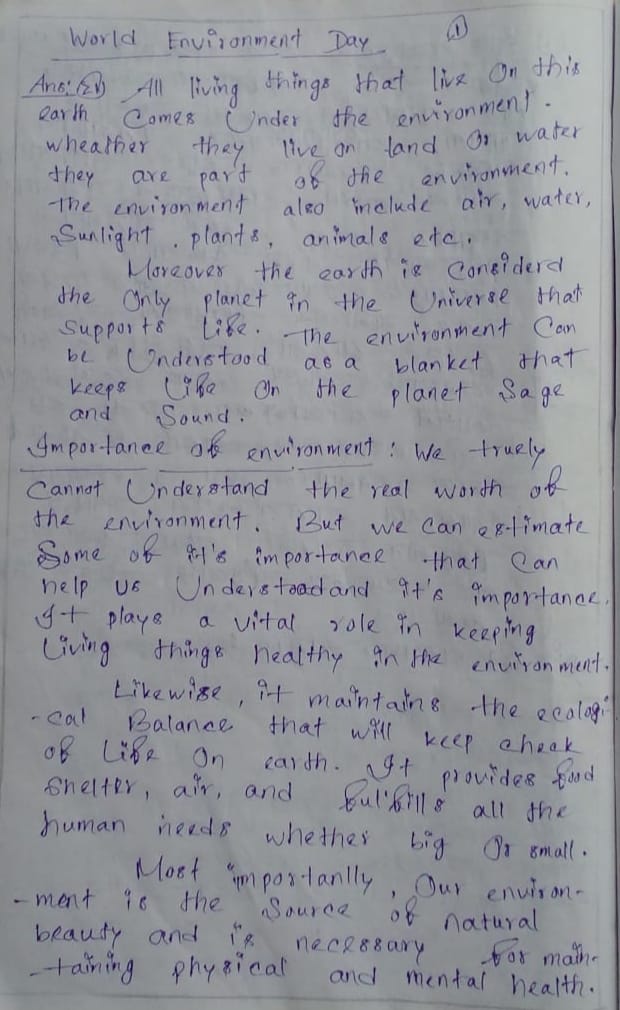 ①
World Environment Day
Ans: All living things that live On this
earth Comes Under the environment.
wheather they live on land Or water
they are part of the environment.
The environment also include air, water,
Sunlight, plants, animals etc.
Moreover the earth is Considerd
the Only planet in the Universe that
Supports Life. The environment Can
be Understood as a blanket that
keeps Life On the planet Sage
and Sound.
Importance of environment: We truely
Cannot Understand the real worth of
the environment. But we Can estimate
Some of it's importance that Can
help us it's importance.
It plays a vital role in keeping
Living things healthy in the environment.
Likewise, it maintains the ecologi
-cal Balance that will keep check
of Life On earth. It provides food
Shelter, air, and fulfills all the
human needs whether big Or small.
Most importanlly, Our environ-
-ment is the Source of natural
beauty and is necessary for main-
-taining physical and mental health.